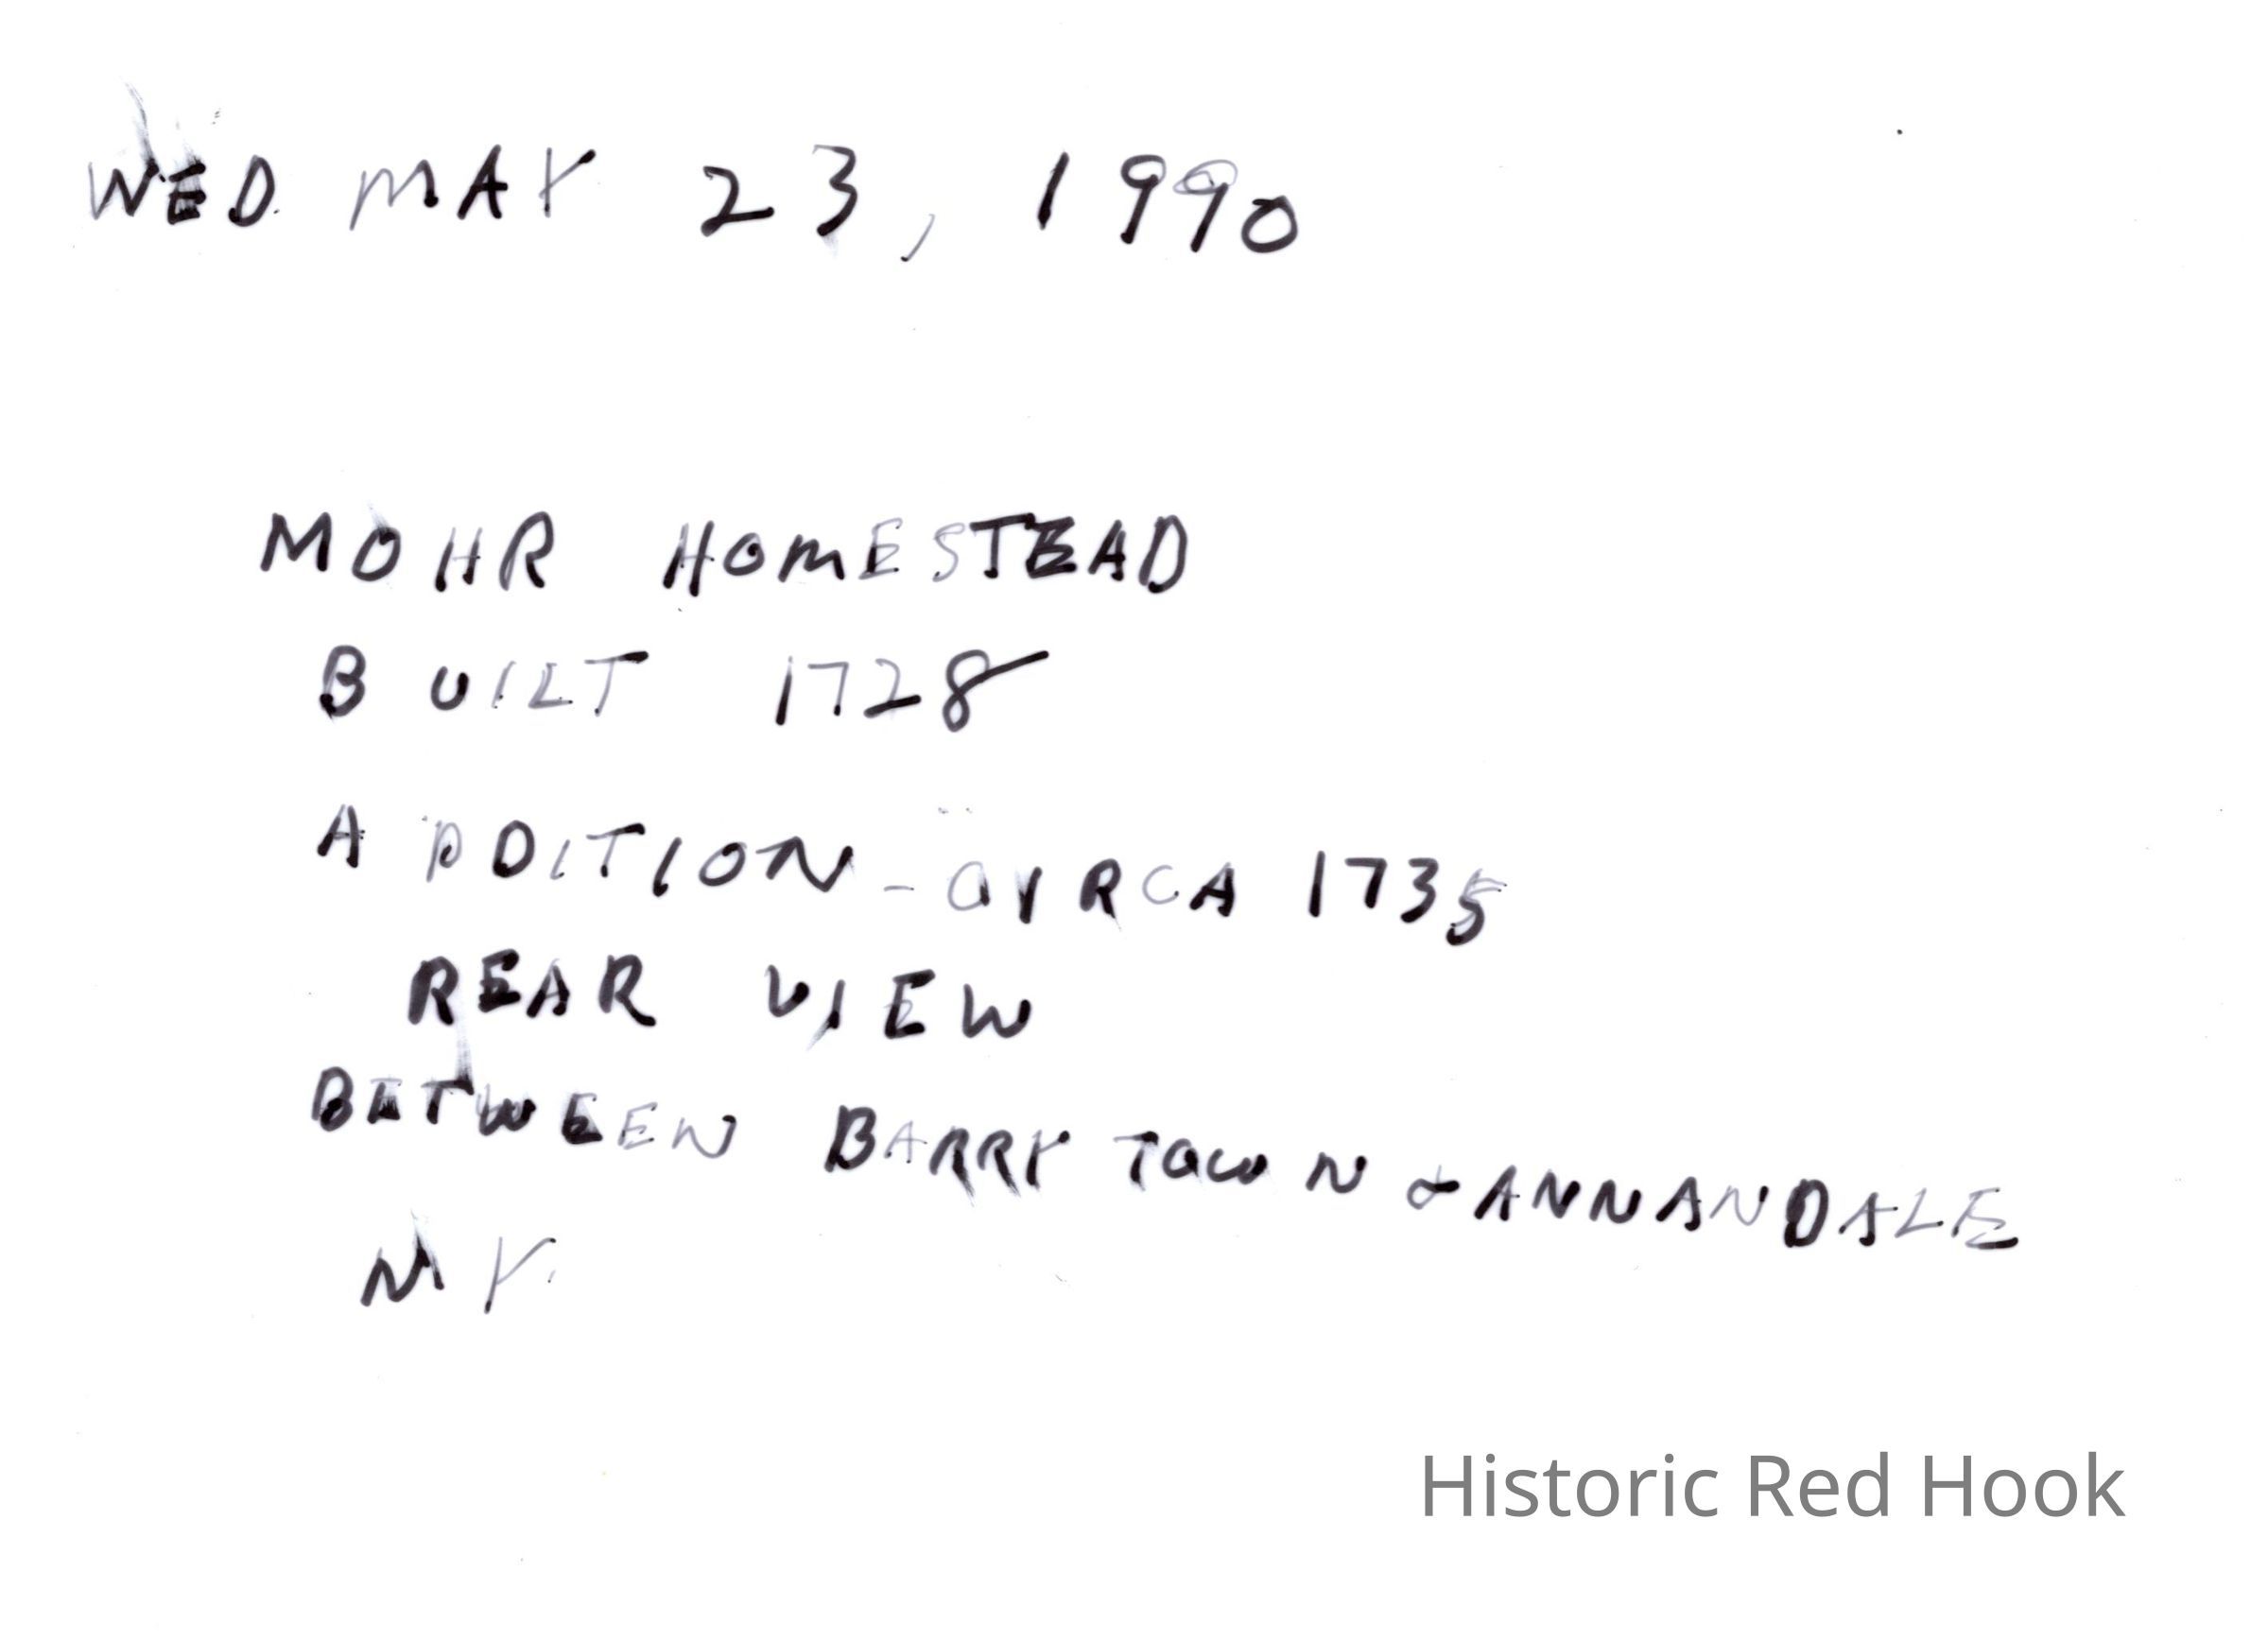 WED. MAY 23, 1990
MOHR HOMESTEAD
BUILT 1728
ADDITION - CIRCA 1735
REAR VIEW
BETWEEN BARRYTOWN & ANNANDALE
NY.
Historic Red Hook